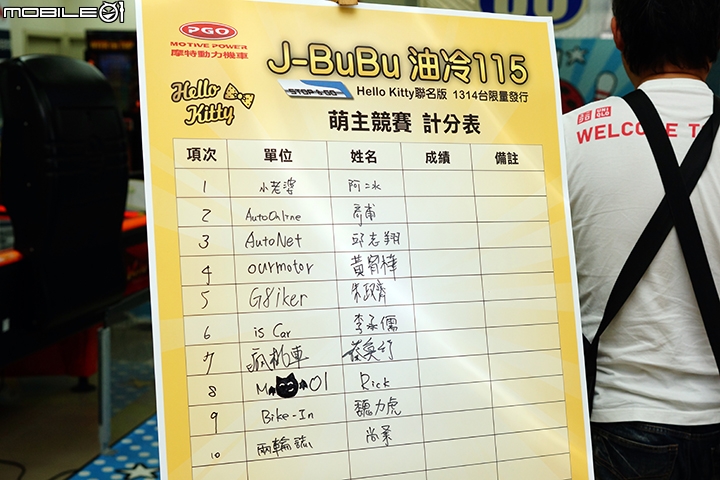 MOBILE01
PGO
MOTIVE POWER
摩特動力機車
J-BuBu 油冷115
STOP&GO
Hello Kitty聯名版 1314台限量發行
Hello
Kitty
萌主競賽 計分表
項次 單位 姓名 成績 備註
1 小老婆 阿二水
2 AutoOnline
3 AutoNet 邱志翔
4 ourmotor
5 G8iker
6 is Car 李承儒
7 瘋拍車
8 M 01 Rick
9 Bike-In 魏力虎
10 兩輪誌
WELCOME T